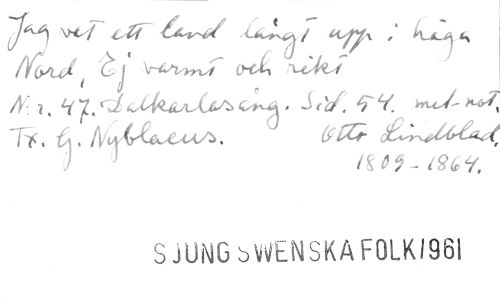 Jag vet ett land långt upp i höga
Nord, Ej varmt och rikt
Nr. 47. Dalkarlasång. Sid. 54. met-not.
Tx. G. Nyblaeus. Otto Lindblad.
1809-1864.
SJUNG SWENSKA FOLK 1961